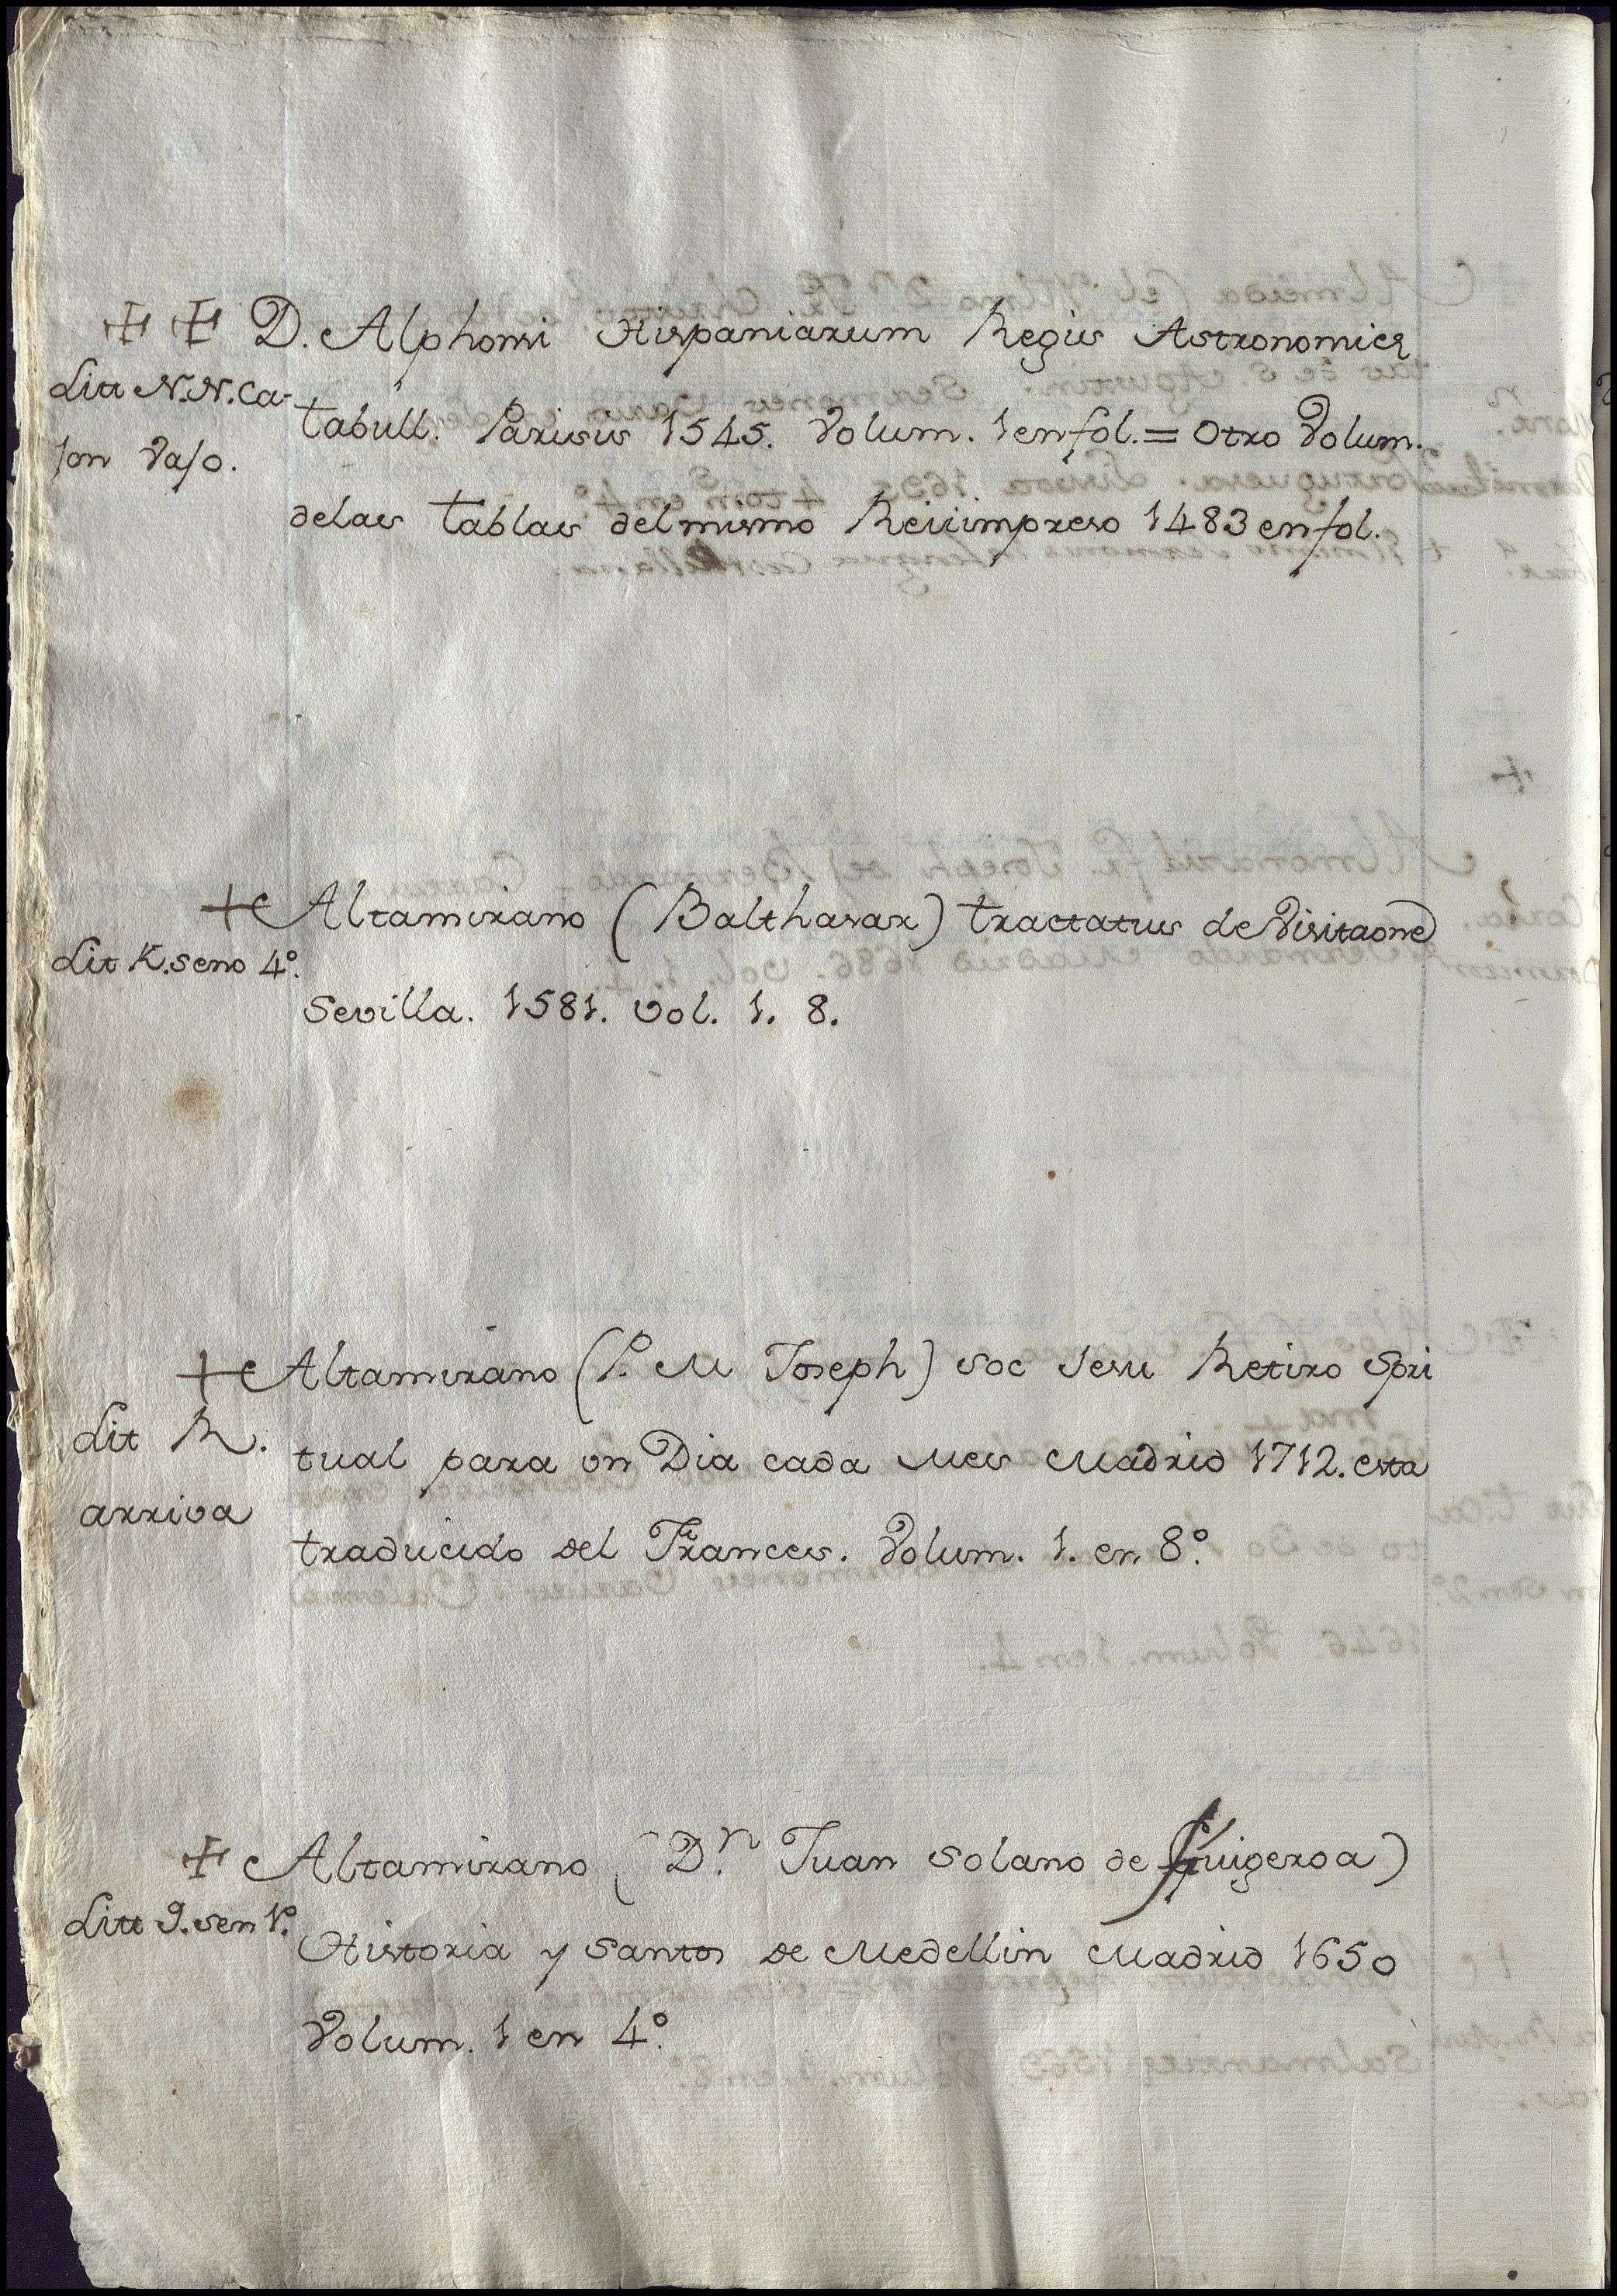 D. Alphonsi Hispaniarum Regis Astronomicę
Litt N.N. Ca-
tabull. Parisiis 1545. Volum. 1 en fol. = Otro Volum.
jon Vajo.
delas tablas del mismo Rei impreso 1483 en fol.
Altamirano (Balthasar) tractatus de Visitaone
Lit K. seno 4º.
Sevilla. 1581. vol. 1. 8.
Altamirano (P. M Joseph) soc Jesu Retiro Spri
Lit R.
tual para vn Dia cada Mes Madrid 1712. esta
arriva
traducido del Frances. Volum. 1. en 8º.
Altamirano (D.n Juan Solano de Fuigeroa)
Litt J. sen 1º.
Historia y Santos de Medellin Madrid 1650
Volum. 1 en 4º.